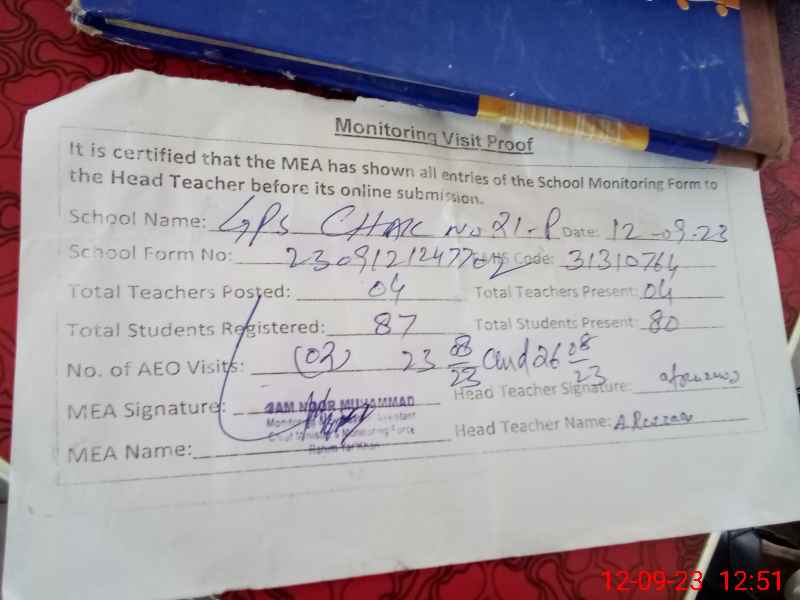 Monitoring Visit Proof
It is certified that the MEA has shown all entries of the School Monitoring Form to
the Head Teacher before its online submission.
School Name: GPS CHAK No 21-P Date: 12-09-23
School Form No: Code: 31310764
Total Teachers Posted: 04 Total Teachers Present: 04
Total Students Registered: 87 Total Students Present: 80
No. of AEO Visits: (02) 23 08/23 and 26 08/23
MEA Signature: JAM NOOR MUHAMMAD Head Teacher Signature:
Monitoring Assistant
Chief Minister's Monitoring Force
Rahim Yar Khan
MEA Name: Head Teacher Name:
12-09-23 12:51